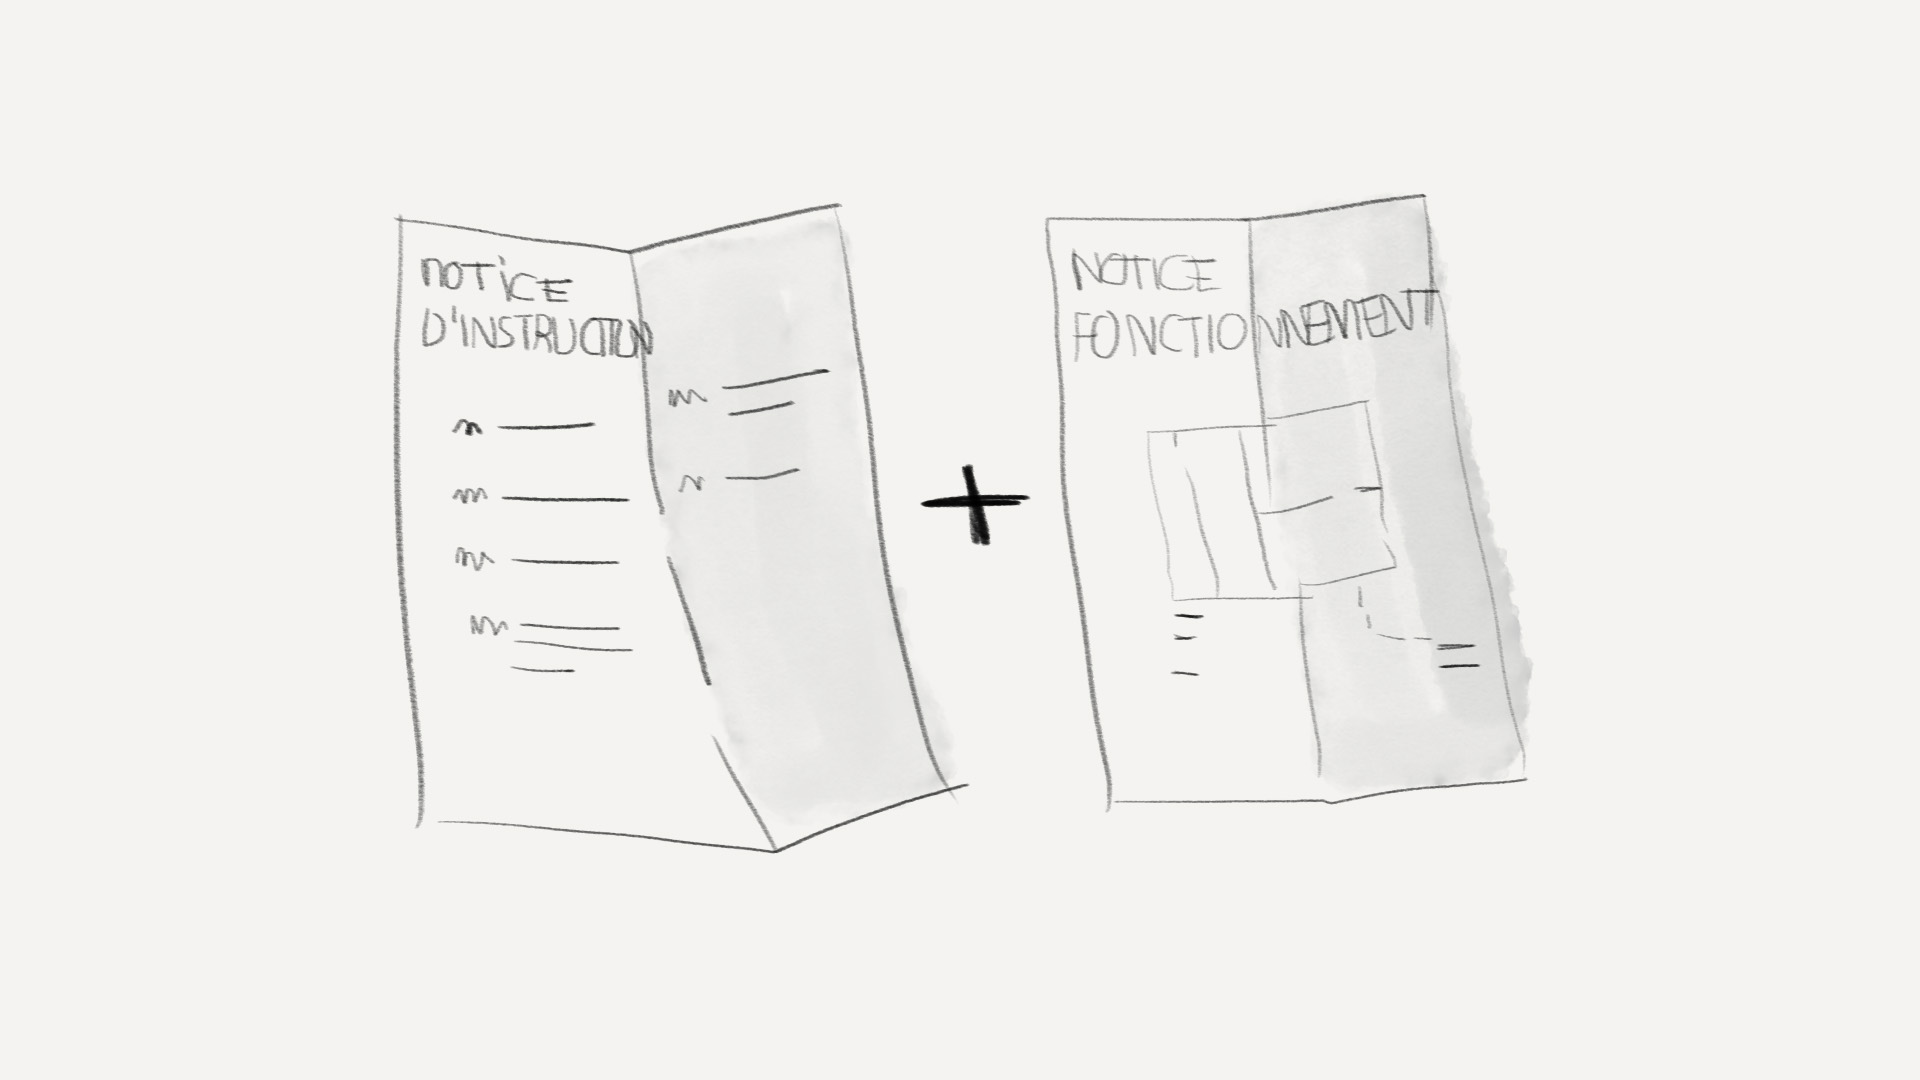 NOTICE
D'INSTRUCTION
+
NOTICE
FONCTIONNEMENT